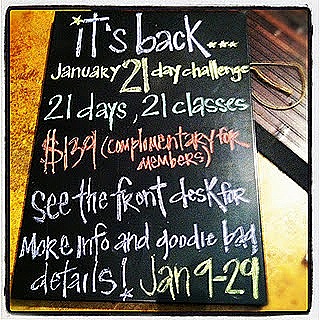 it's back...
January 21 day challenge
21 days, 21 classes
$139 (complimentary for
members)
see the front desk for
more info and goodie bag
details! Jan 9-29